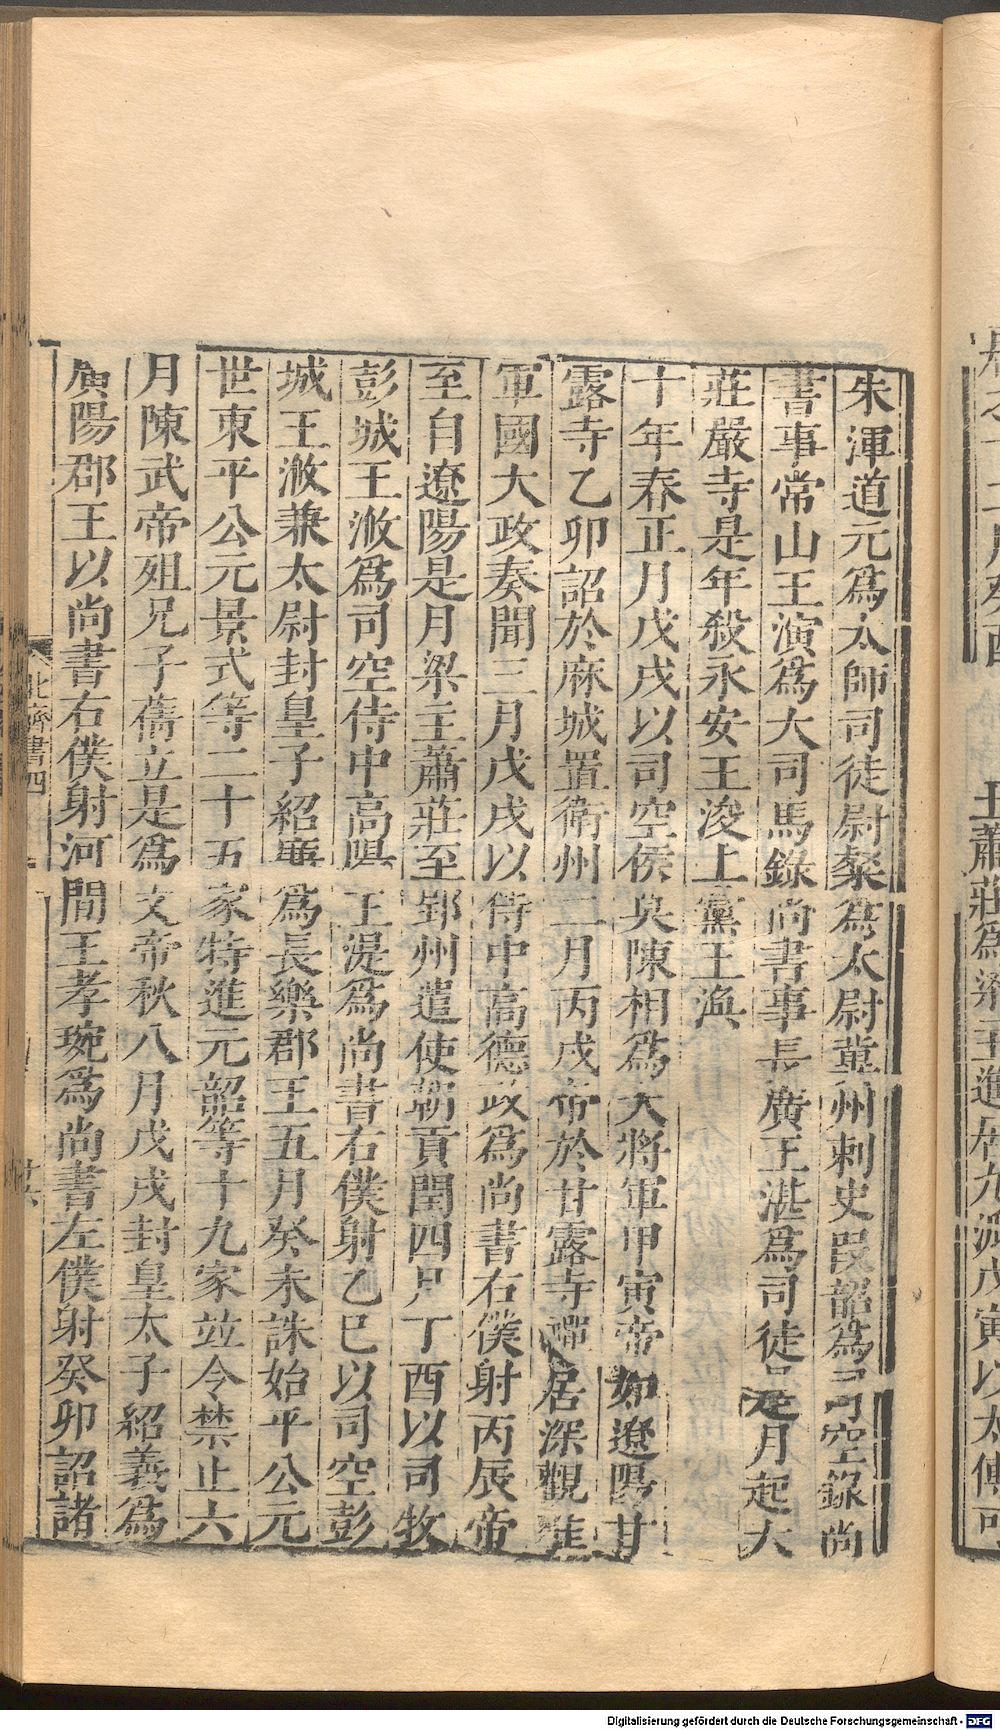 朱渾道元爲太師司徒尉粲爲太尉冀州刺史段韶爲司空錄尚
書事常山王演爲大司馬錄尚書事長廣王湛爲司徒是月起大
莊嚴寺是年殺永安王浚上黨王渙
十年春正月戊戌以司空侯莫陳相爲大將軍甲寅帝如遼陽甘
露寺乙卯詔於麻城置衛州二月丙戌帝於甘露寺禪居深觀唯
軍國大政奏聞三月戊戌以侍中高德政爲尚書右僕射丙辰帝
至自遼陽是月梁主蕭莊至郢州遣使朝貢閏四月丁酉以司牧
彭城王浟爲司空侍中高陽王湜爲尚書右僕射乙巳以司空彭
城王浟兼太尉封皇子紹廉爲長樂郡王五月癸未誅始平公元
世東平公元景式等二十五家特進元韶等十九家竝令禁止六
月陳武帝殂兄子蒨立是爲文帝秋八月戊戌封皇太子紹義爲
廣陽郡王以尚書右僕射河間王孝琬爲尚書左僕射癸卯詔諸
北齊書四
廿六
王蕭莊爲梁主進居九派戊寅以太傅可
Digitalisierung gefördert durch die Deutsche Forschungsgemeinschaft - DFG